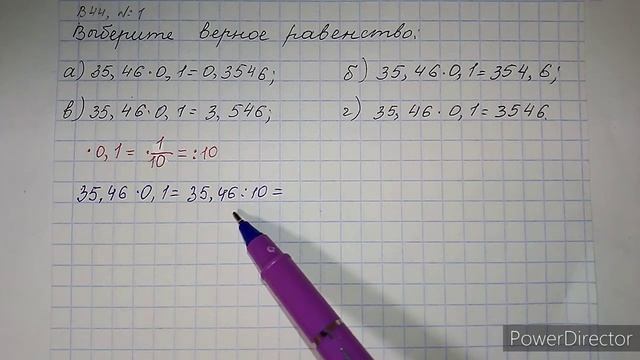 В44, №1
Выберите верное равенство:
а) 35,46·0,1=0,3546; б) 35,46·0,1=354,6;
в) 35,46·0,1=3,546; г) 35,46·0,1=3546.
·0,1=·1/10=:10
35,46·0,1=35,46:10=
PowerDirector